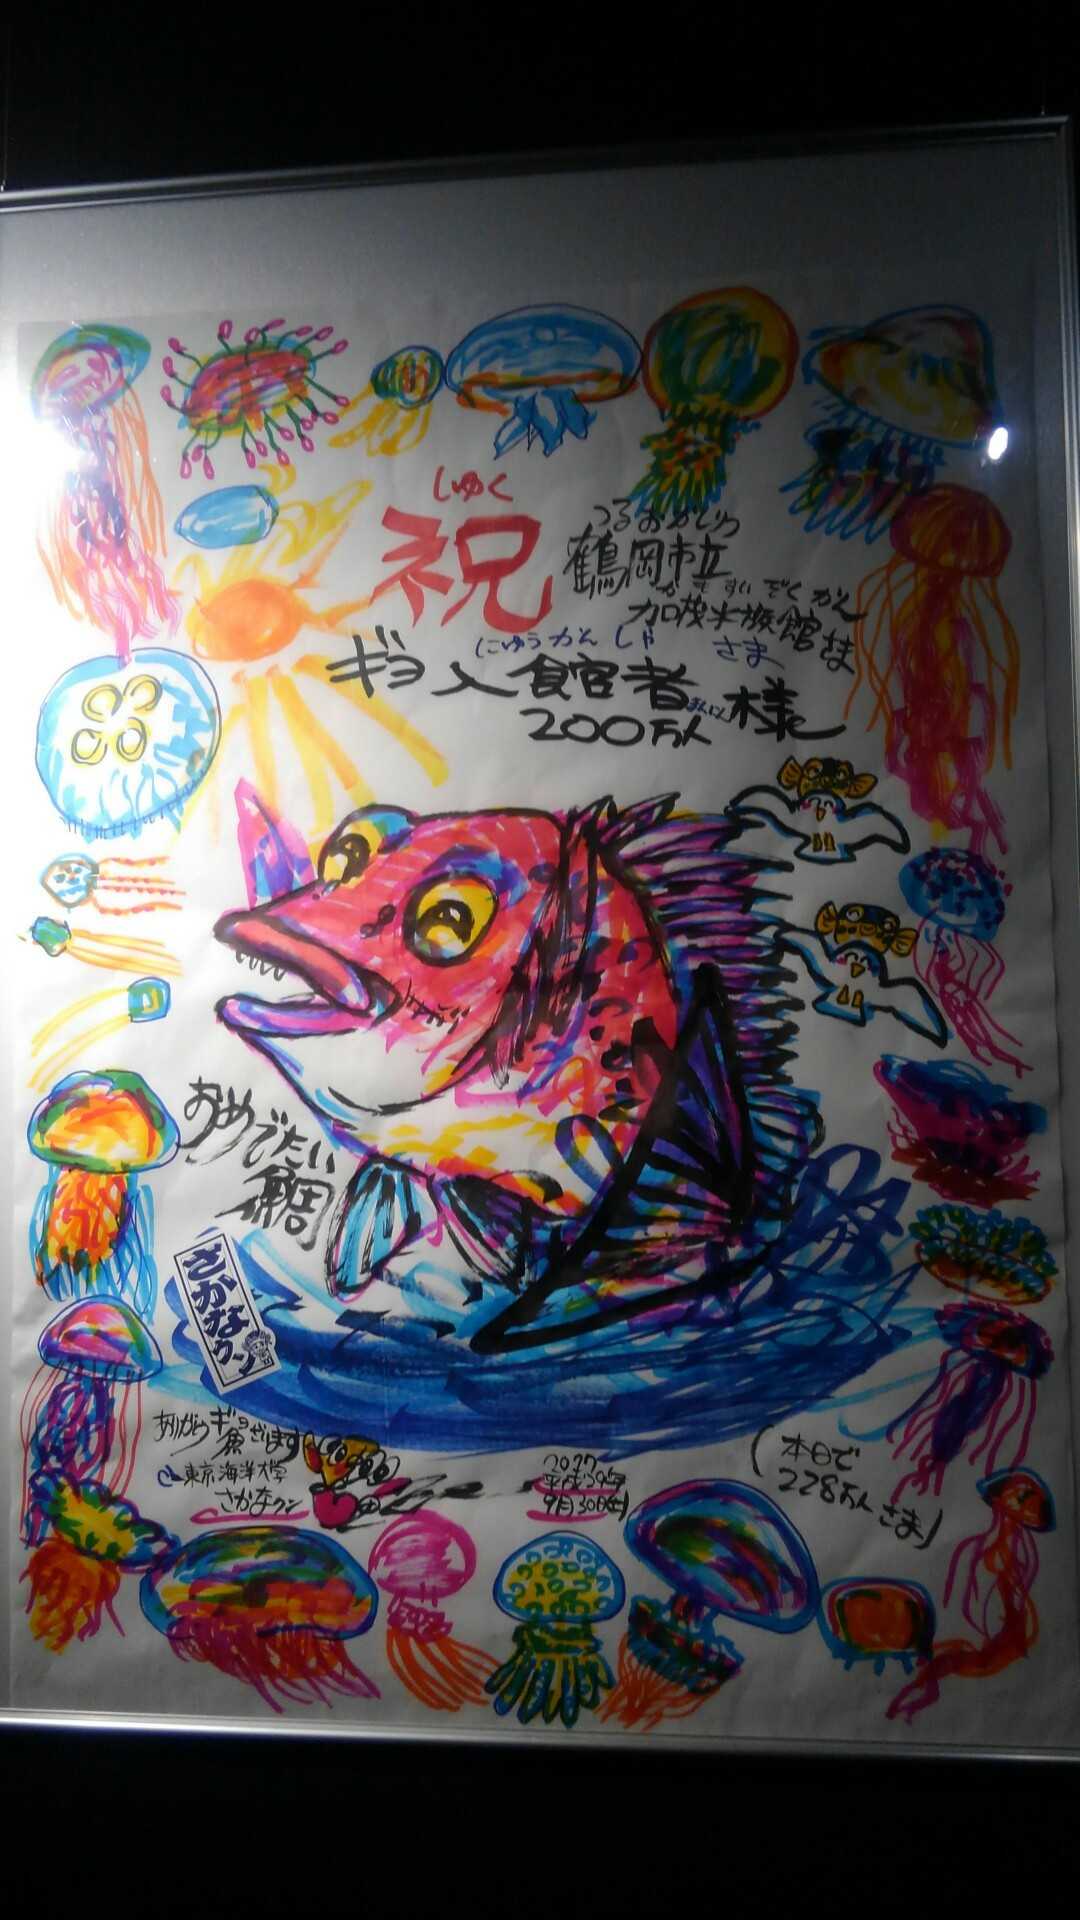 しゅく
祝
つるおかしりつ
鶴岡市立
かもすいぞくかん
加茂水族館さま
にゅうかんしゃ さま
ギョ入館者様
200万人
まんにん
おめでたい
鯛
さかなクン
ありがとうギョざいます
東京海洋大学
さかなクン
2017
平成29年
9月30日(土)
(本日で
228万人さま)